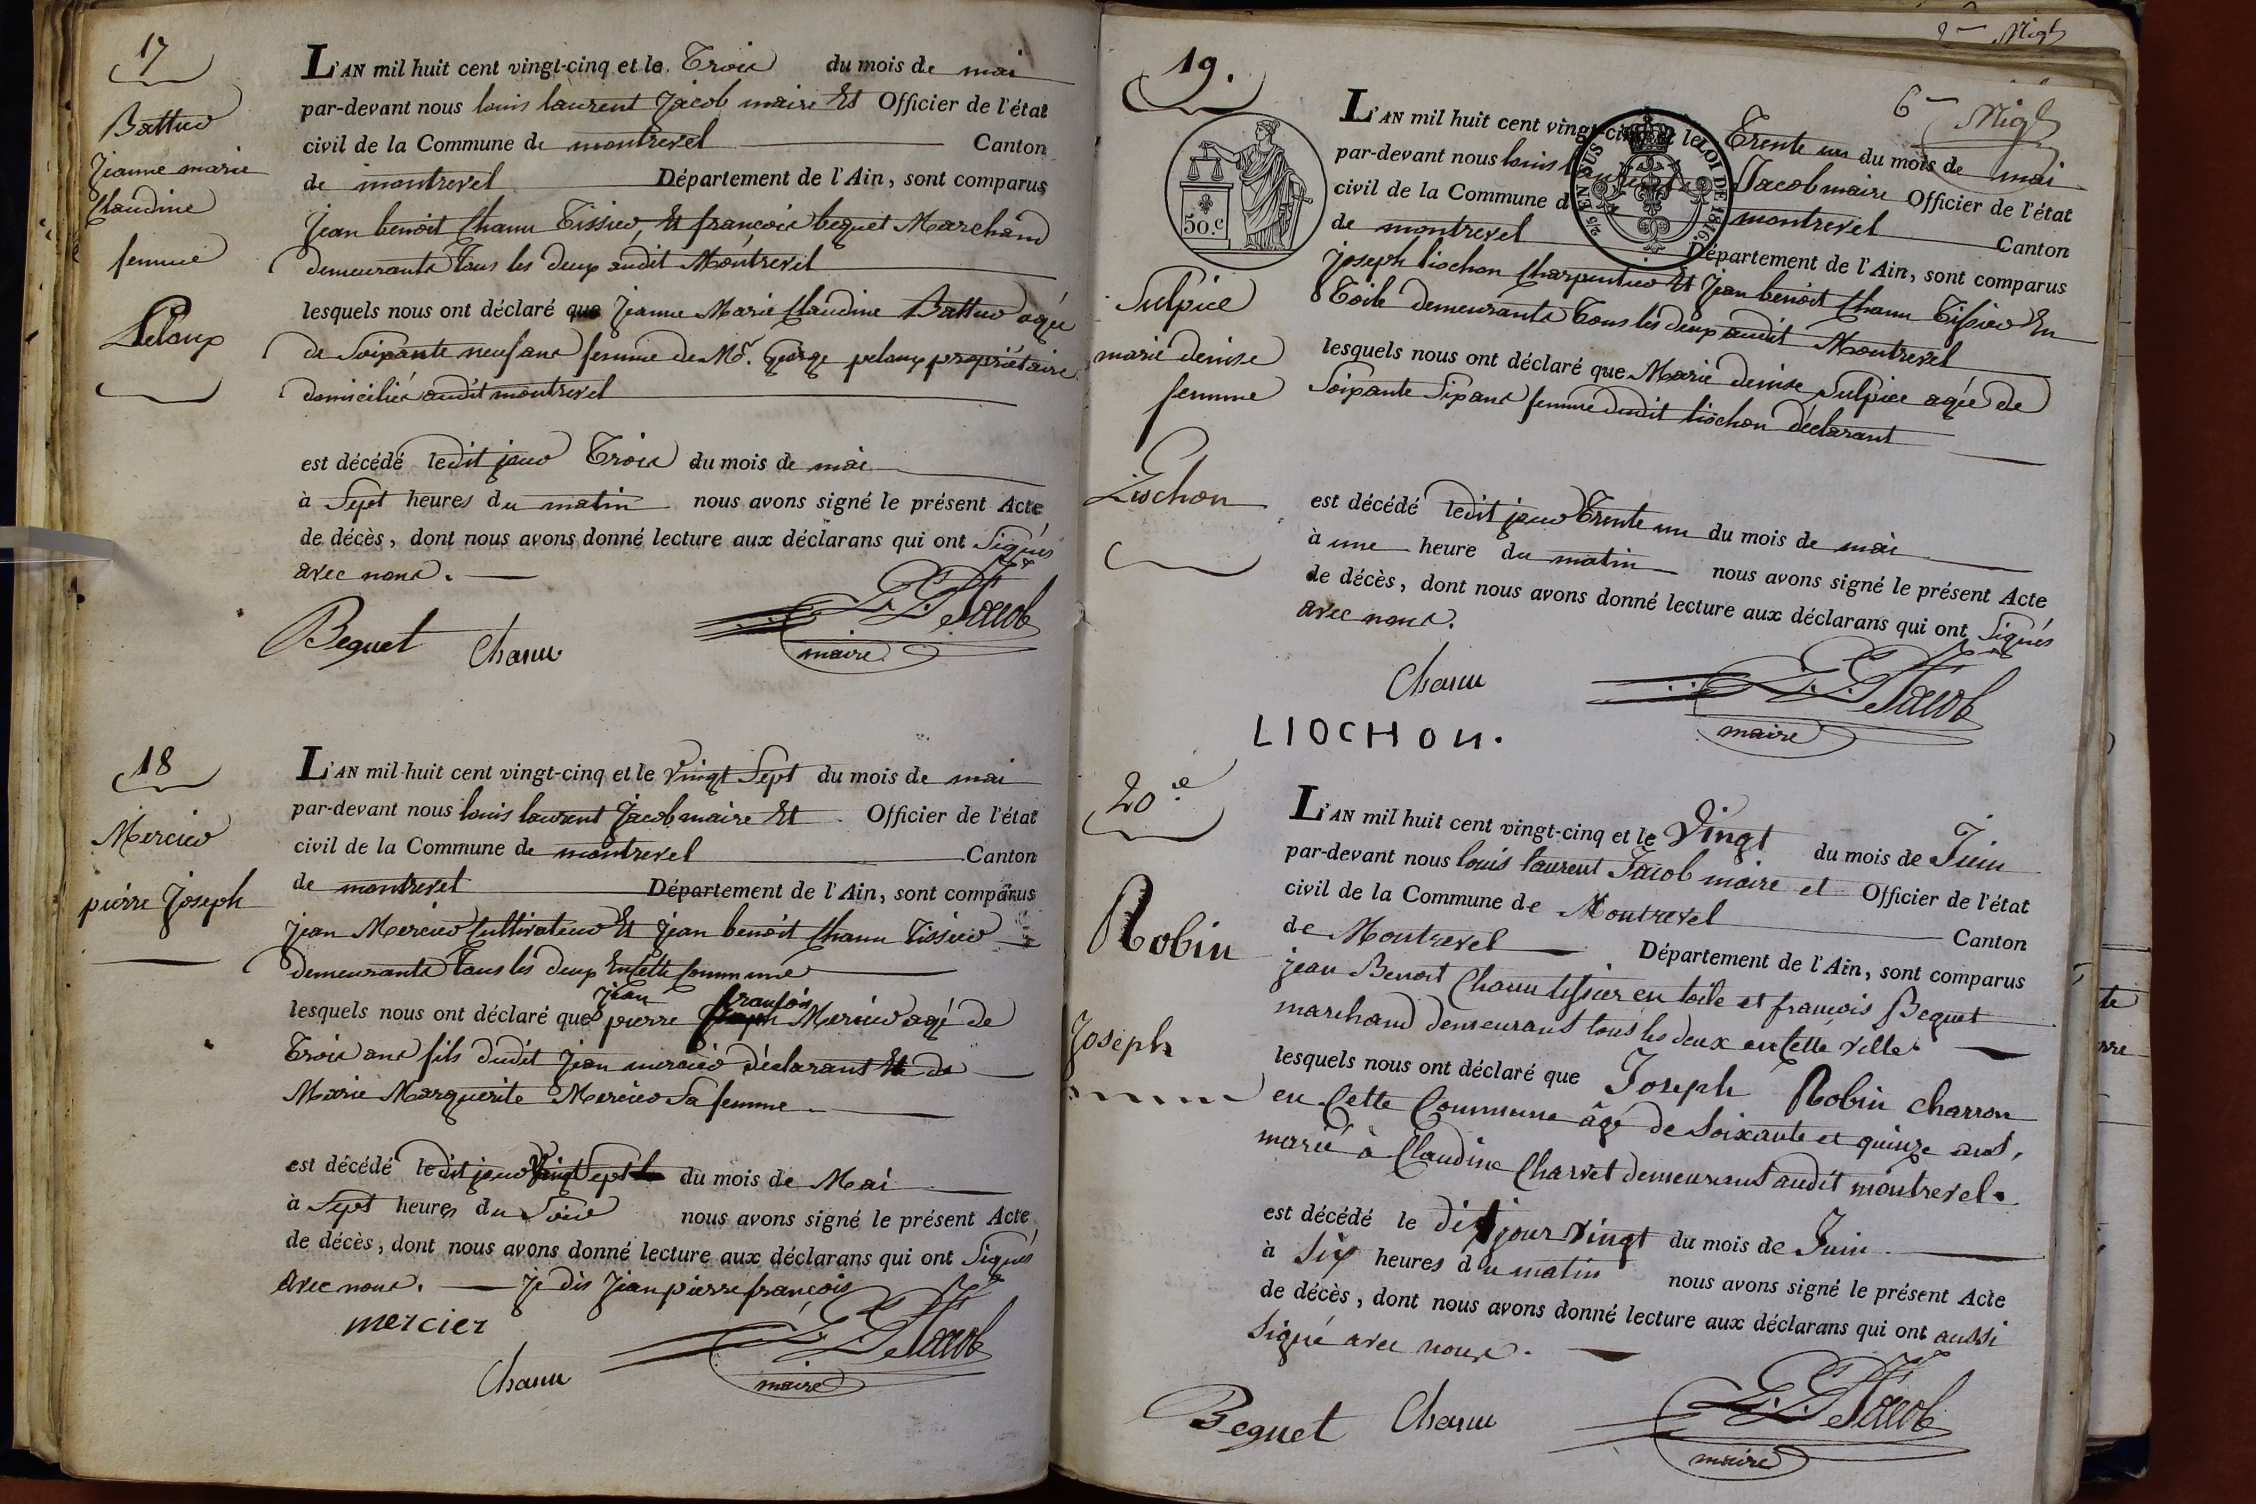 17
Battur
Jeanne marie
Claudine
femme
Peloux
L'AN mil huit cent vingt-cinq et le Trois du mois de mai
par-devant nous louis laurent Jacob maire Et Officier de l'état
civil de la Commune de montrevel Canton
de montrevel Département de l'Ain, sont comparus
Jean benoit Chanu Tissier, Et françois bequet Marchand
demeurants Tous les deux audit Montrevel
lesquels nous ont déclaré que Jeanne Marie Claudine Battur agée
de Soixante neuf ans femme de Mr. George peloux propriétaire
domiciliés audit montrevel
est décédé ledit jour Trois du mois de mai
à Sept heures du matin nous avons signé le présent Acte
de décès, dont nous avons donné lecture aux déclarans qui ont Signés
avec nous.
Bequet Chanu L. L. Jacob
maire
18
Mercier
pierre Joseph
L'AN mil huit cent vingt-cinq et le Vingt Sept du mois de mai
par-devant nous louis laurent Jacob maire Et Officier de l'état
civil de la Commune de montrevel Canton
de montrevel Département de l'Ain, sont comparus
Jean Mercier Cultivateur Et Jean benoit Chanu Tissier
demeurants Tous les deux En cette Commune
jean françois
lesquels nous ont déclaré que pierre Joseph Mercier agé de
Trois ans fils dudit Jean mercier déclarant Et de
Marie Marguerite Mercier Sa femme
est décédé ledit jour Vingt Sept du mois de Mai
à Sept heures du Soir nous avons signé le présent Acte
de décès, dont nous avons donné lecture aux déclarans qui ont Signés
avec nous. je dis Jean pierre françois
mercier
Chanu L. L. Jacob
maire
2me Migt
6me Migt
19.
50.c
Sulpice
marie denise
femme
Liochon
L'AN mil huit cent vingt-cinq et le Trente un du mois de mai
par-devant nous louis laurent Jacob maire Officier de l'état
civil de la Commune de montrevel Canton
LOI DE 1816.
EN SUS
de montrevel Département de l'Ain, sont comparus
Joseph liochon Charpentier Et Jean benoit Chanu Tissier En
Toile demeurants Tous les deux audit Montrevel
lesquels nous ont déclaré que Marie denise Sulpice agée de
Soixante Six ans femme dudit liochon déclarant
est décédé ledit jour Trente un du mois de mai
à une heure du matin nous avons signé le présent Acte
de décès, dont nous avons donné lecture aux déclarans qui ont Signés
avec nous.
Chanu L. L. Jacob
maire
LIOCHON.
20e.
Robin
Joseph
L'AN mil huit cent vingt-cinq et le Vingt du mois de Juin
par-devant nous louis laurent Jacob maire et Officier de l'état
civil de la Commune de Montrevel Canton
de Montrevel Département de l'Ain, sont comparus
jean Benoit Chanu tissier en toile et françois Bequet
marchand demeurant tous les deux en Cette ville
lesquels nous ont déclaré que Joseph Robin charron
en Cette Commune âgé de Soixante et quinze ans,
marié à Claudine Charvet demeurant audit montrevel.
est décédé le dit jour vingt du mois de Juin
à Six heures du matin nous avons signé le présent Acte
de décès, dont nous avons donné lecture aux déclarans qui ont aussi
Signé avec nous.
Bequet Chanu L. L. Jacob
maire